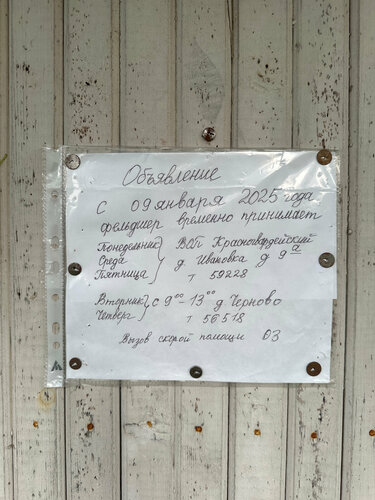 Объявление
С 09 января 2025 года
фельдшер временно принимает
Понедельник
Среда
Пятница
Красногвардейский
д Ивановка д 9а
т 59228
Вторник
Четверг
с 9⁰⁰-13⁰⁰ д Черново
т 56518
Вызов скорой помощи 03